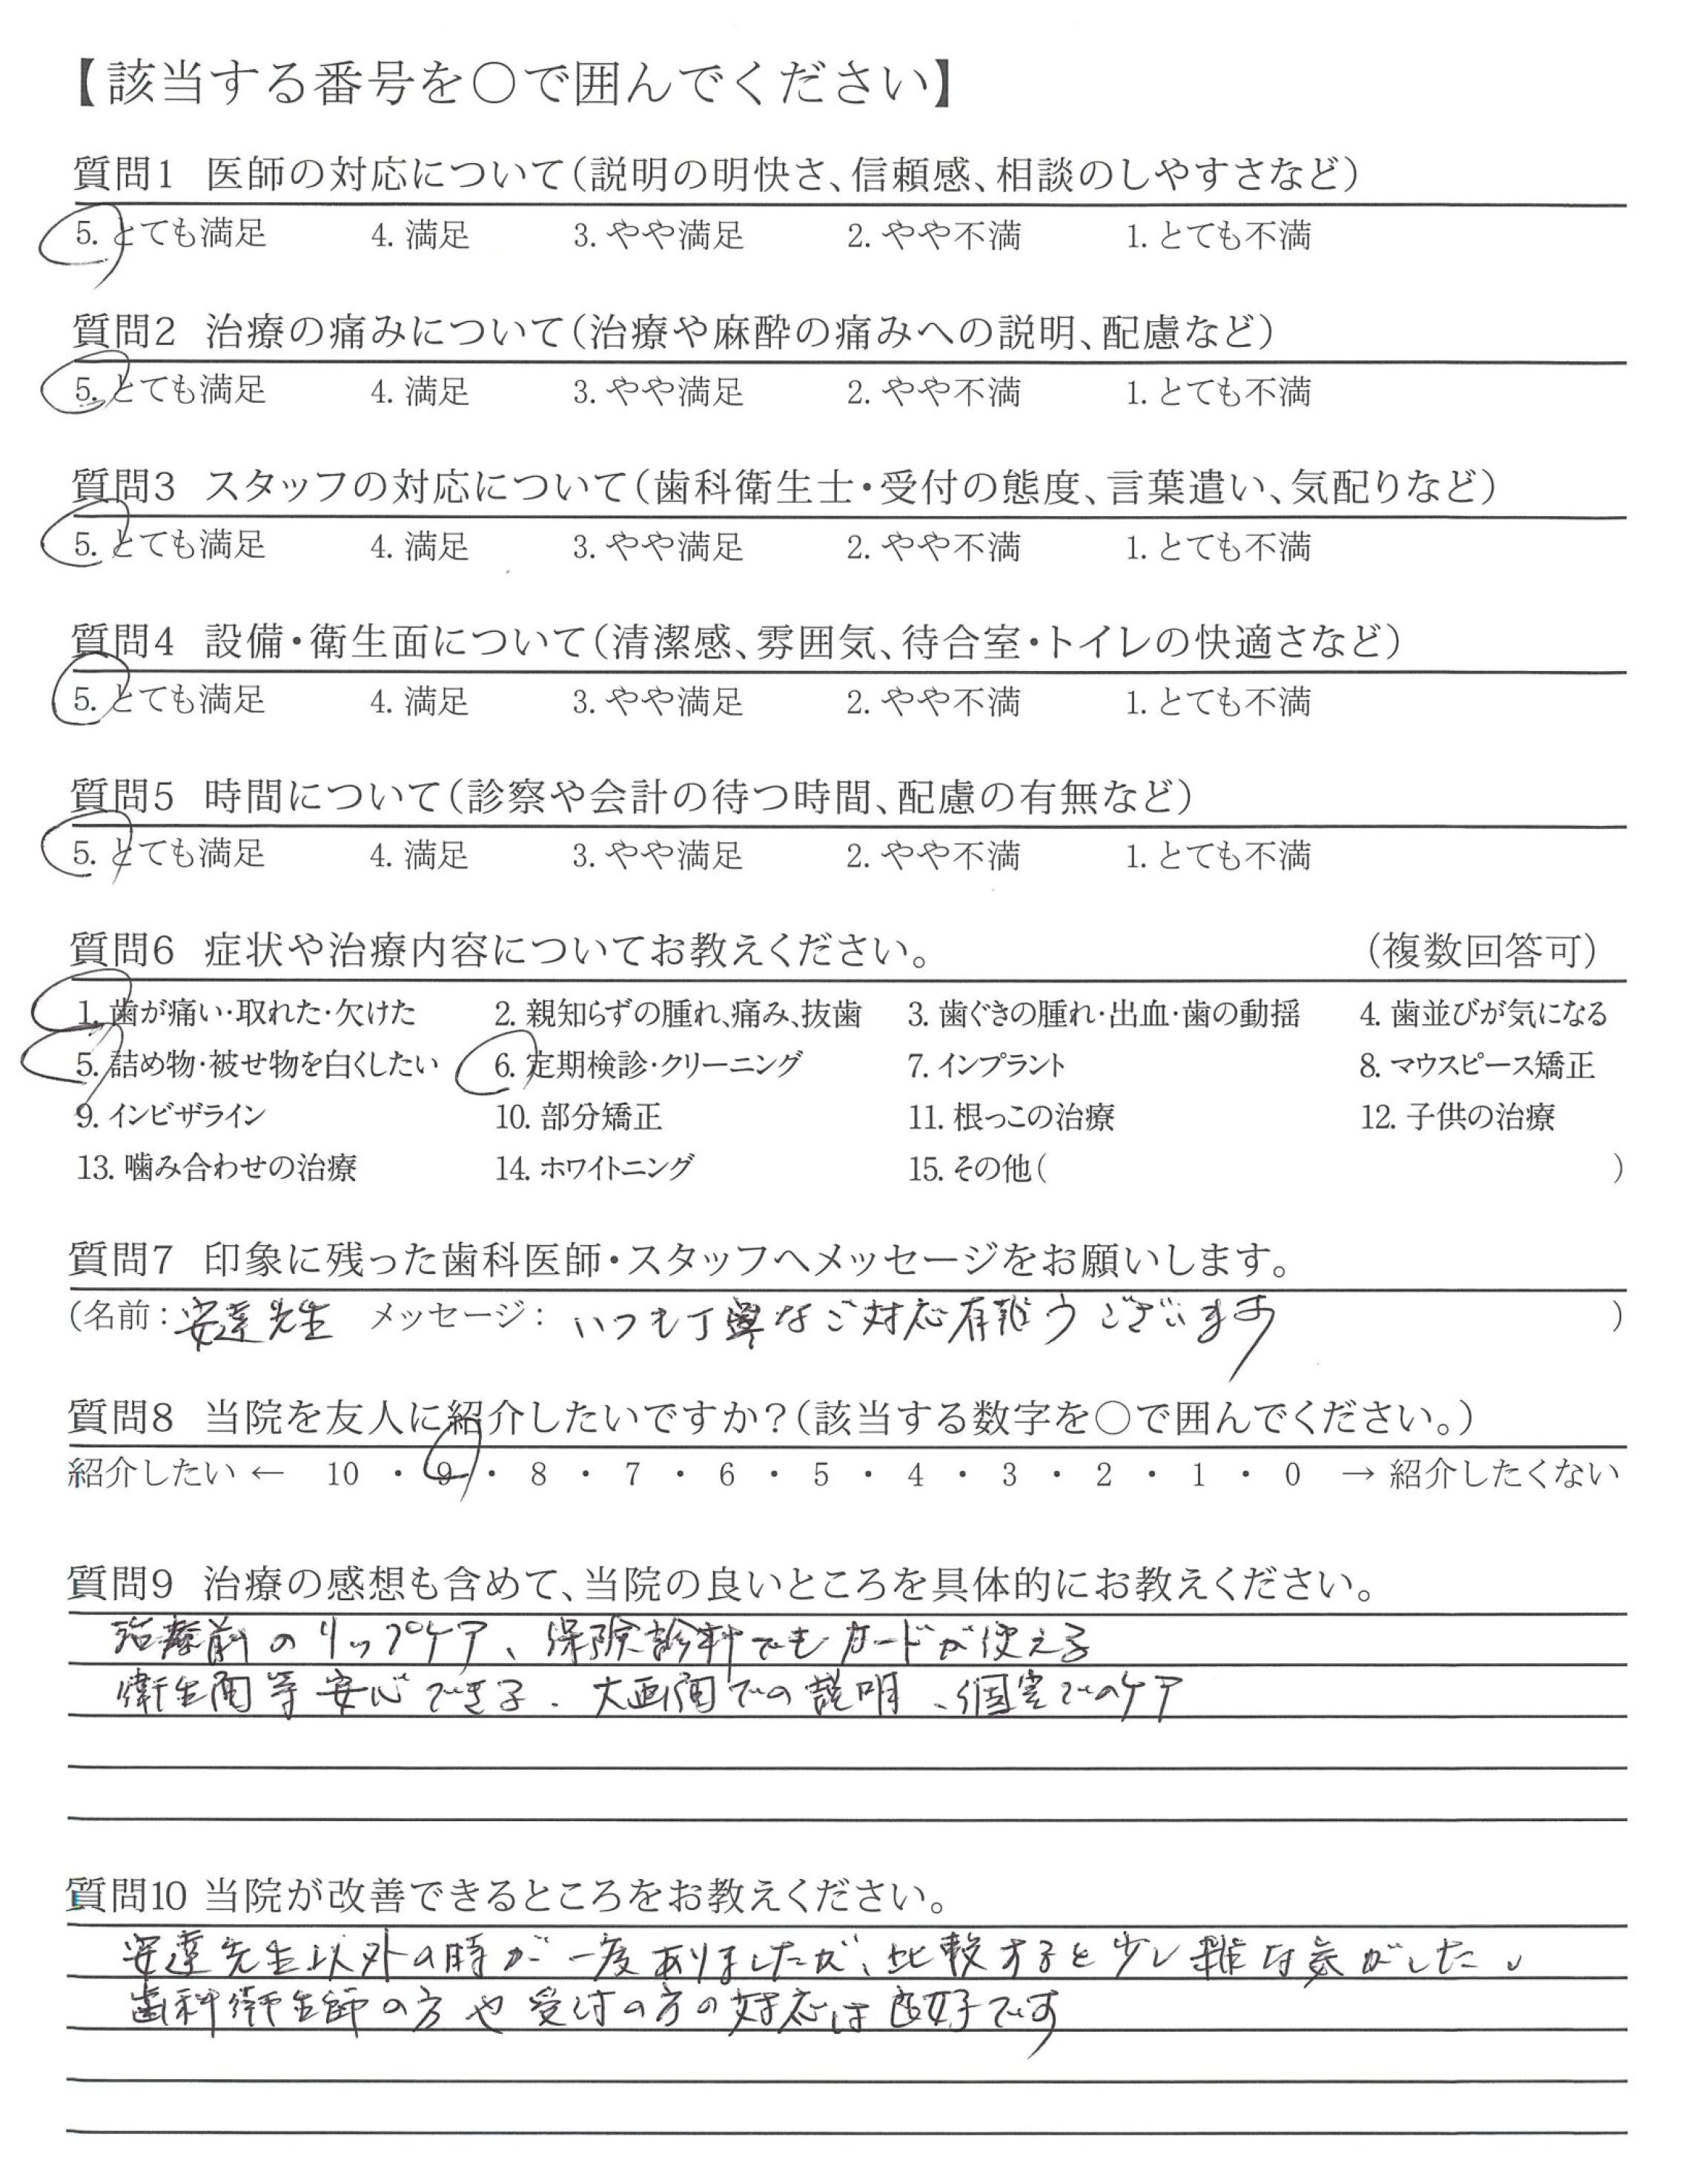 【該当する番号を○で囲んでください】
質問1 医師の対応について(説明の明快さ、信頼感、相談のしやすさなど)
5. とても満足 4. 満足 3. やや満足 2. やや不満 1. とても不満
質問2 治療の痛みについて(治療や麻酔の痛みへの説明、配慮など)
5. とても満足 4. 満足 3. やや満足 2. やや不満 1. とても不満
質問3 スタッフの対応について(歯科衛生士・受付の態度、言葉遣い、気配りなど)
5. とても満足 4. 満足 3. やや満足 2. やや不満 1. とても不満
質問4 設備・衛生面について(清潔感、雰囲気、待合室・トイレの快適さなど)
5. とても満足 4. 満足 3. やや満足 2. やや不満 1. とても不満
質問5 時間について(診察や会計の待つ時間、配慮の有無など)
5. とても満足 4. 満足 3. やや満足 2. やや不満 1. とても不満
質問6 症状や治療内容についてお教えください。 (複数回答可)
1. 歯が痛い・取れた・欠けた 2. 親知らずの腫れ、痛み、抜歯 3. 歯ぐきの腫れ・出血・歯の動揺 4. 歯並びが気になる
5. 詰め物・被せ物を白くしたい 6. 定期検診・クリーニング 7. インプラント 8. マウスピース矯正
9. インビザライン 10. 部分矯正 11. 根っこの治療 12. 子供の治療
13. 噛み合わせの治療 14. ホワイトニング 15. その他( )
質問7 印象に残った歯科医師・スタッフへメッセージをお願いします。
(名前:安達先生 メッセージ: いつも丁寧なご対応有難うございます )
質問8 当院を友人に紹介したいですか?(該当する数字を○で囲んでください。)
紹介したい ← 10 ・ 9 ・ 8 ・ 7 ・ 6 ・ 5 ・ 4 ・ 3 ・ 2 ・ 1 ・ 0 → 紹介したくない
質問9 治療の感想も含めて、当院の良いところを具体的にお教えください。
治療前のリップケア、保険診料でもカードが使える
衛生面等安心できる. 大画面での説明、個室でのケア
質問10 当院が改善できるところをお教えください。
安達先生以外の時が一度ありましたが、比較すると少し雑な気がした。
歯科衛生師の方や受付の方の対応は良好です